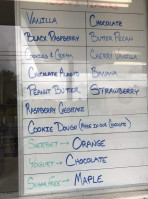 Vanilla Chocolate
Black Raspberry Butter Pecan
Cookies & Cream Cherry Vanilla
Chocolate Almond Banana
Peanut Butter Strawberry
Raspberry Cheesecake
Cookie Dough (Made in our Chocolate)
Sherbet → Orange
Yogurt → Chocolate
Sugar Free → Maple